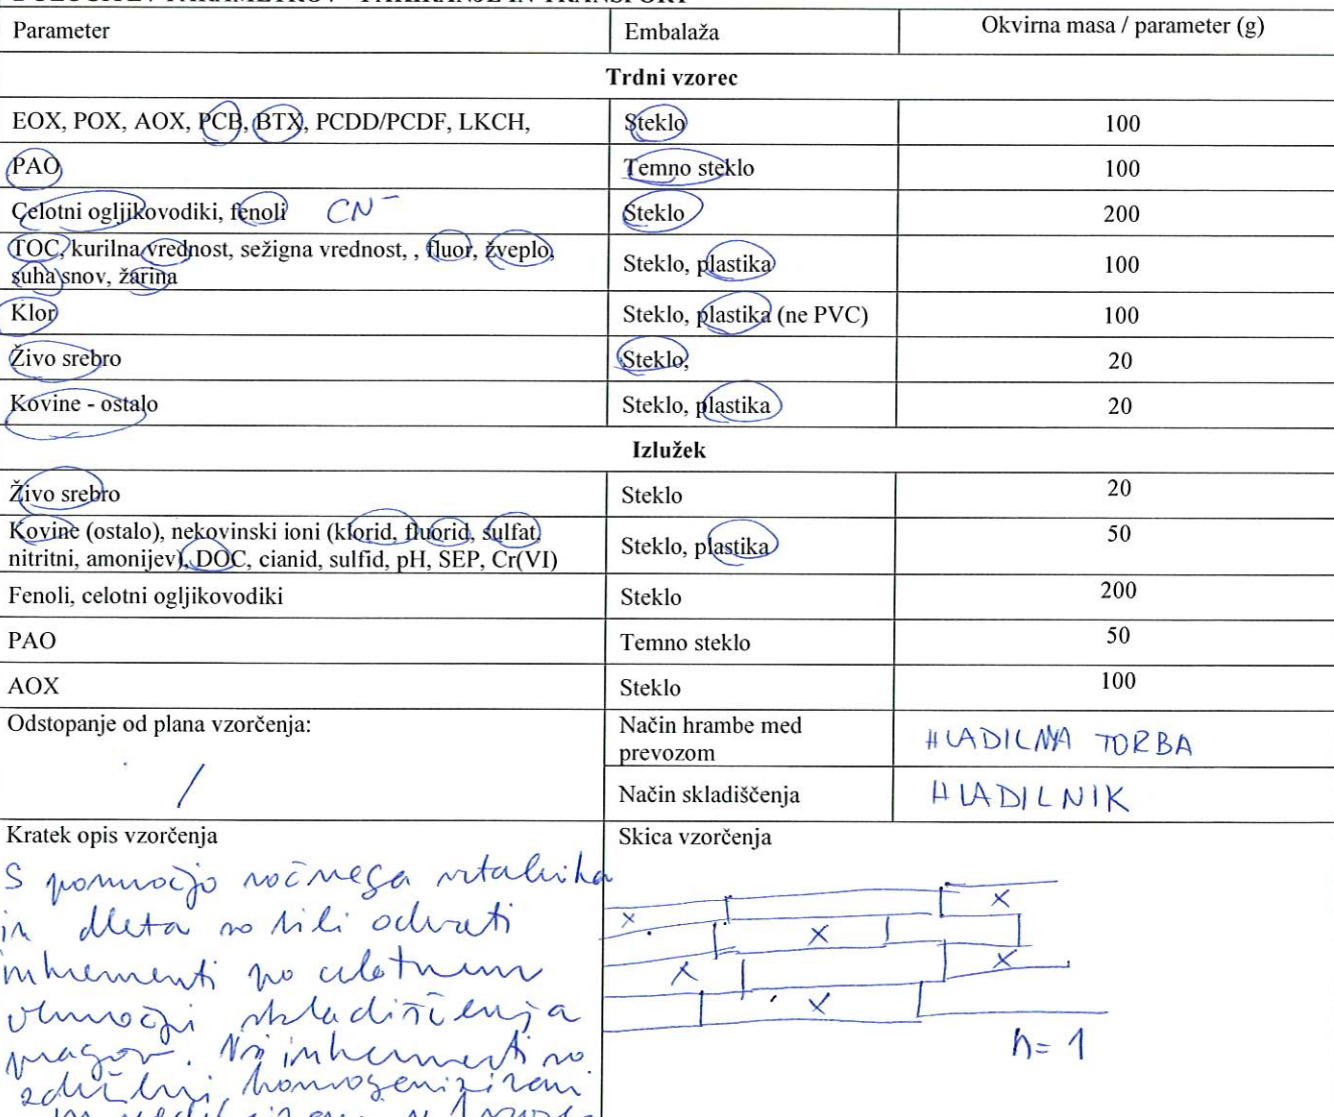 DOLOČITEV PARAMETROV - PAKIRANJE IN TRANSPORT
Parameter Embalaža Okvirna masa / parameter (g)
Trdni vzorec
EOX, POX, AOX, PCB, BTX, PCDD/PCDF, LKCH, Steklo 100
PAO Temno steklo 100
Celotni ogljikovodiki, fenoli CN⁻ Steklo 200
TOC, kurilna vrednost, sežigna vrednost, , fluor, žveplo,
suha snov, žarina Steklo, plastika 100
Klor Steklo, plastika (ne PVC) 100
Živo srebro Steklo, 20
Kovine - ostalo Steklo, plastika 20
Izlužek
Živo srebro Steklo 20
Kovine (ostalo), nekovinski ioni (klorid, fluorid, sulfat,
nitritni, amonijev), DOC, cianid, sulfid, pH, SEP, Cr(VI) Steklo, plastika 50
Fenoli, celotni ogljikovodiki Steklo 200
PAO Temno steklo 50
AOX Steklo 100
Odstopanje od plana vzorčenja:
/
Način hrambe med
prevozom HLADILNA TORBA
Način skladiščenja HLADILNIK
Kratek opis vzorčenja
S pomočjo ročnega vrtalnika
in dleta so bili odvzeti
inkrementi po celotnem
območju skladiščenja
pragov. Vsi inkrementi so
združeni, homogenizirani
Skica vzorčenja
x x
x
x x
x
n= 1